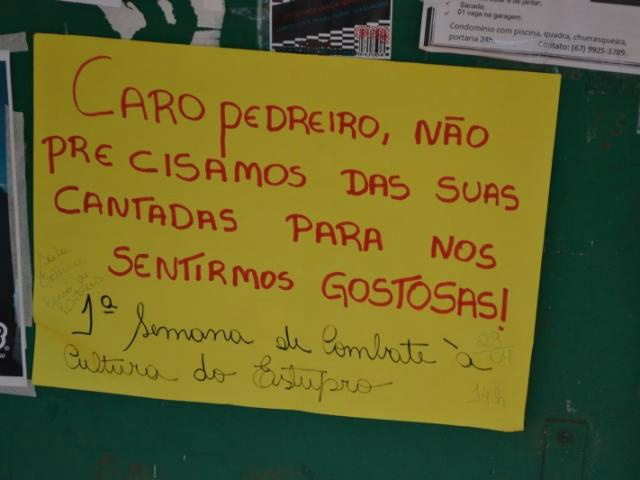 Sacada;
01 vaga na garagem.
Condomínio com piscina, quadra, churrasqueira,
portaria 24h. Contato: (67) 9925-3789.
CARO PEDREIRO, NÃO
PRECISAMOS DAS SUAS
CANTADAS PARA NOS
SENTIRMOS GOSTOSAS!
1ª Semana de Combate à
Cultura do Estupro
14h